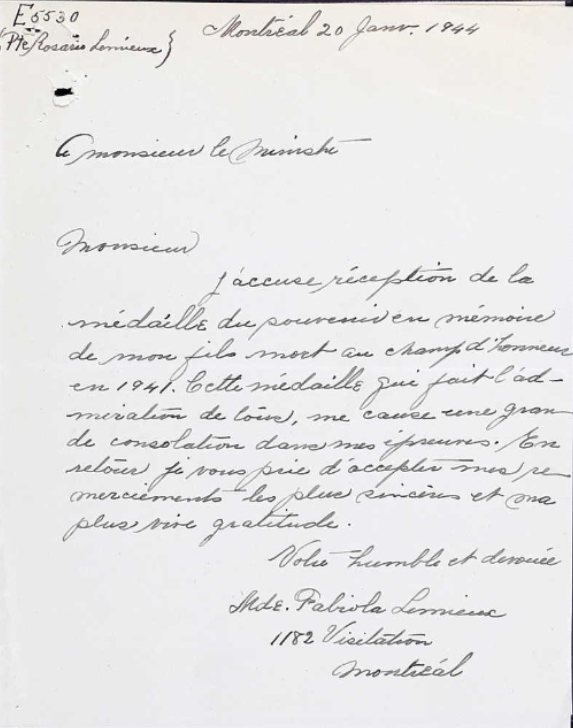 E5530
(Pte Rosario Lemieux)
Montréal 20 Janv. 1944
A monsieur le Ministre
Monsieur
J'accuse réception de la
médaille du souvenir en mémoire
de mon fils mort au champ d'honneur
en 1941. Cette médaille qui fait l'ad-
miration de tous, me cause une gran
de consolation dans mes épreuves. En
retour je vous prie d'accepter mes re
merciements les plus sincères et ma
plus vive gratitude.
Votre humble et dévouée
Mde. Fabiola Lemieux
1182 Visitation
Montréal